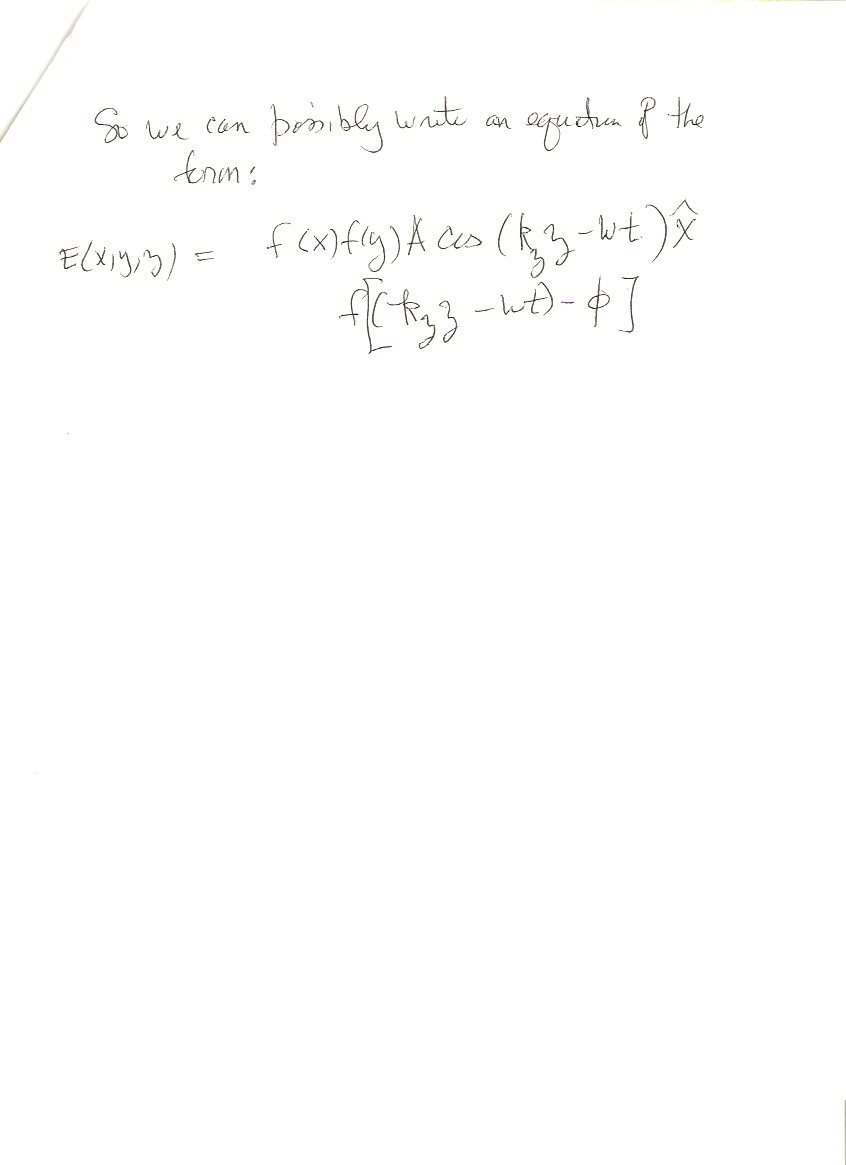 So we can possibly write an equation of the
form:
E(x,y,z) = f(x)f(y) A cos (k_z z - wt) x̂
f[(k_z z - wt) - ϕ]